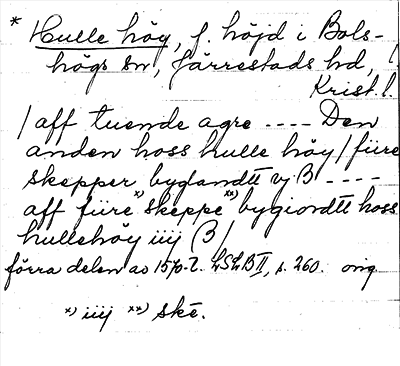 * Hulle höy, f. höjd i Bols-
högs sn, Järrestads hd,
Krist. l.
/ aff tuende agre ---- Den
anden hoss hulle höy / fiire
skepper bygландtt vj B ----
aff fiire x) skeppe xx) bygiordtt hoss
hullehöy iiij B /
förra delen av 1570-t. LSLB II, s. 260. orig
x) iiij xx) skē.